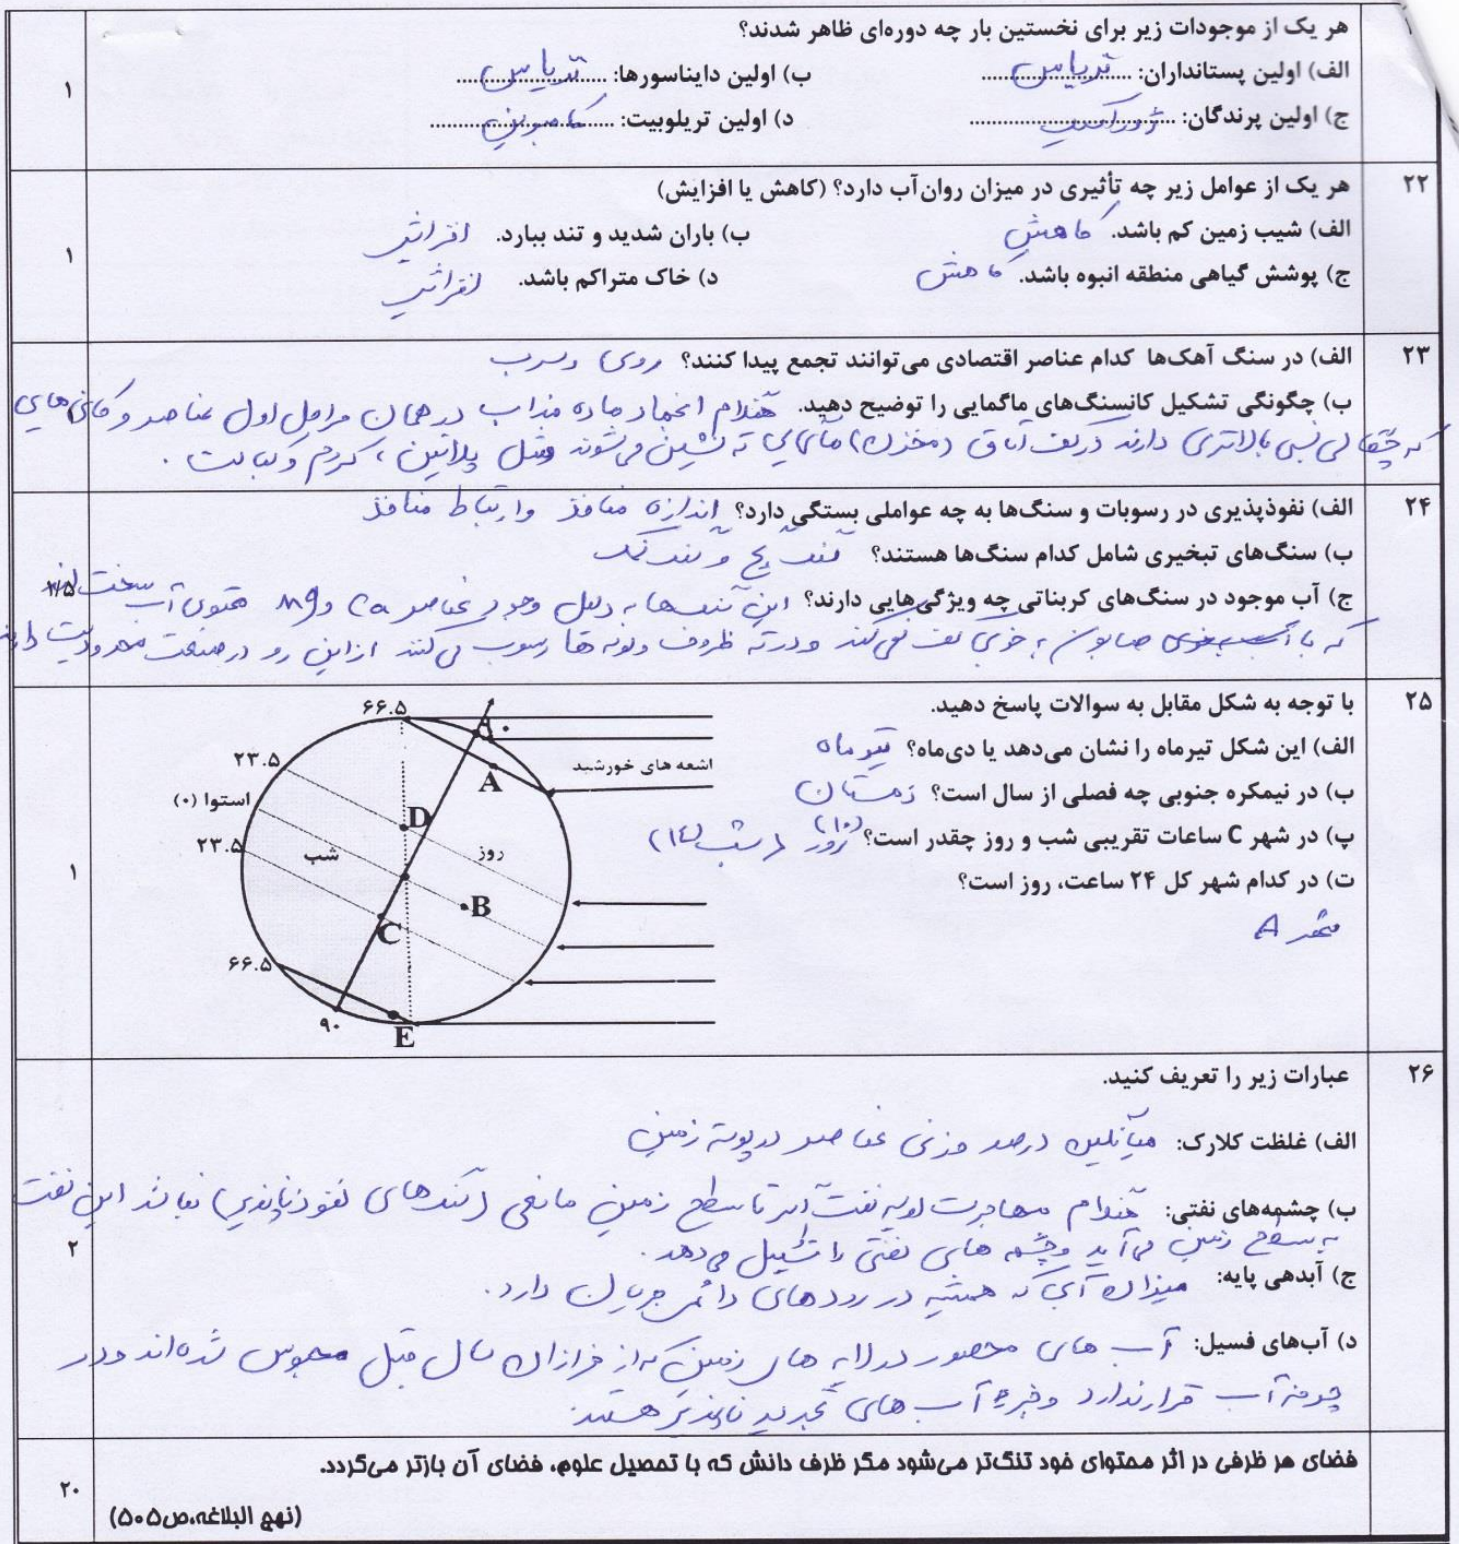 هر یک از موجودات زیر برای نخستین بار چه دوره‌ای ظاهر شدند؟
الف) اولین پستانداران: تریاس ب) اولین دایناسورها: تریاس
۱
ج) اولین پرندگان: ژوراسیک د) اولین تریلوبیت: کامبرین
۲۲ هر یک از عوامل زیر چه تأثیری در میزان روان‌آب دارد؟ (کاهش یا افزایش)
الف) شیب زمین کم باشد. کاهش ب) باران شدید و تند ببارد. افزایش
۱
ج) پوشش گیاهی منطقه انبوه باشد. کاهش د) خاک متراکم باشد. افزایش
۲۳ الف) در سنگ آهک‌ها کدام عناصر اقتصادی می‌توانند تجمع پیدا کنند؟ روی و سرب
ب) چگونگی تشکیل کانسنگ‌های ماگمایی را توضیح دهید. هنگام انجماد ماده مذاب در همان مراحل اول عناصر و کانی‌هایی
که چگالی نسبی بالاتری دارند در کف اتاق (مخزن) ماگمایی ته نشین می‌شوند مثل پلاتین، کروم و
۲۴ الف) نفوذپذیری در رسوبات و سنگ‌ها به چه عواملی بستگی دارد؟ اندازه منافذ و ارتباط منافذ
ب) سنگ‌های تبخیری شامل کدام سنگ‌ها هستند؟ سنگ گچ و سنگ نمک
ج) آب موجود در سنگ‌های کربناتی چه ویژگی‌هایی دارند؟ این سنگ‌ها به دلیل وجود عناصر Ca و Mg محتوی آب سخت اند
که با صابون به خوبی کف نمی‌کند و در ته ظروف و لوله ها رسوب می‌کنند از این رو در صنعت محدودیت دارند
۲۵ با توجه به شکل مقابل به سوالات پاسخ دهید.
الف) این شکل تیرماه را نشان می‌دهد یا دی‌ماه؟ تیر ماه
ب) در نیمکره جنوبی چه فصلی از سال است؟ زمستان
پ) در شهر C ساعات تقریبی شب و روز چقدر است؟ روز (۱۰) شب (۱۴)
۱
ت) در کدام شهر کل ۲۴ ساعت، روز است؟
شهر A
۶۶.۵
۹۰
۲۳.۵
اشعه های خورشید
A
استوا (۰)
D
۲۳.۵
شب
روز
B
C
۶۶.۵
۹۰
E
۲۶ عبارات زیر را تعریف کنید.
الف) غلظت کلارک: میانگین درصد وزنی عناصر در پوسته زمین
ب) چشمه‌های نفتی: هنگام مهاجرت اولیه نفت اگر تا سطح زمین مانعی (سنگ‌های نفوذناپذیر) نباشد این نفت
به سطح زمین می‌آید و چشمه های نفتی را تشکیل می‌دهد.
۲
ج) آبدهی پایه: میزان آبی که همیشه در رودهای دائمی جریان دارد.
د) آب‌های فسیل: آب های محصور در لایه های زمین که از هزاران سال قبل محبوس شده‌اند و در
چرخه آب قرار ندارد و جزء آب های تجدید ناپذیر هستند.
فضای هر ظرفی در اثر محتوای خود تنگ‌تر می‌شود مگر ظرف دانش که با تحصیل علوم، فضای آن بازتر می‌گردد.
۲۰
(نهج البلاغه،ص۵۰۵)